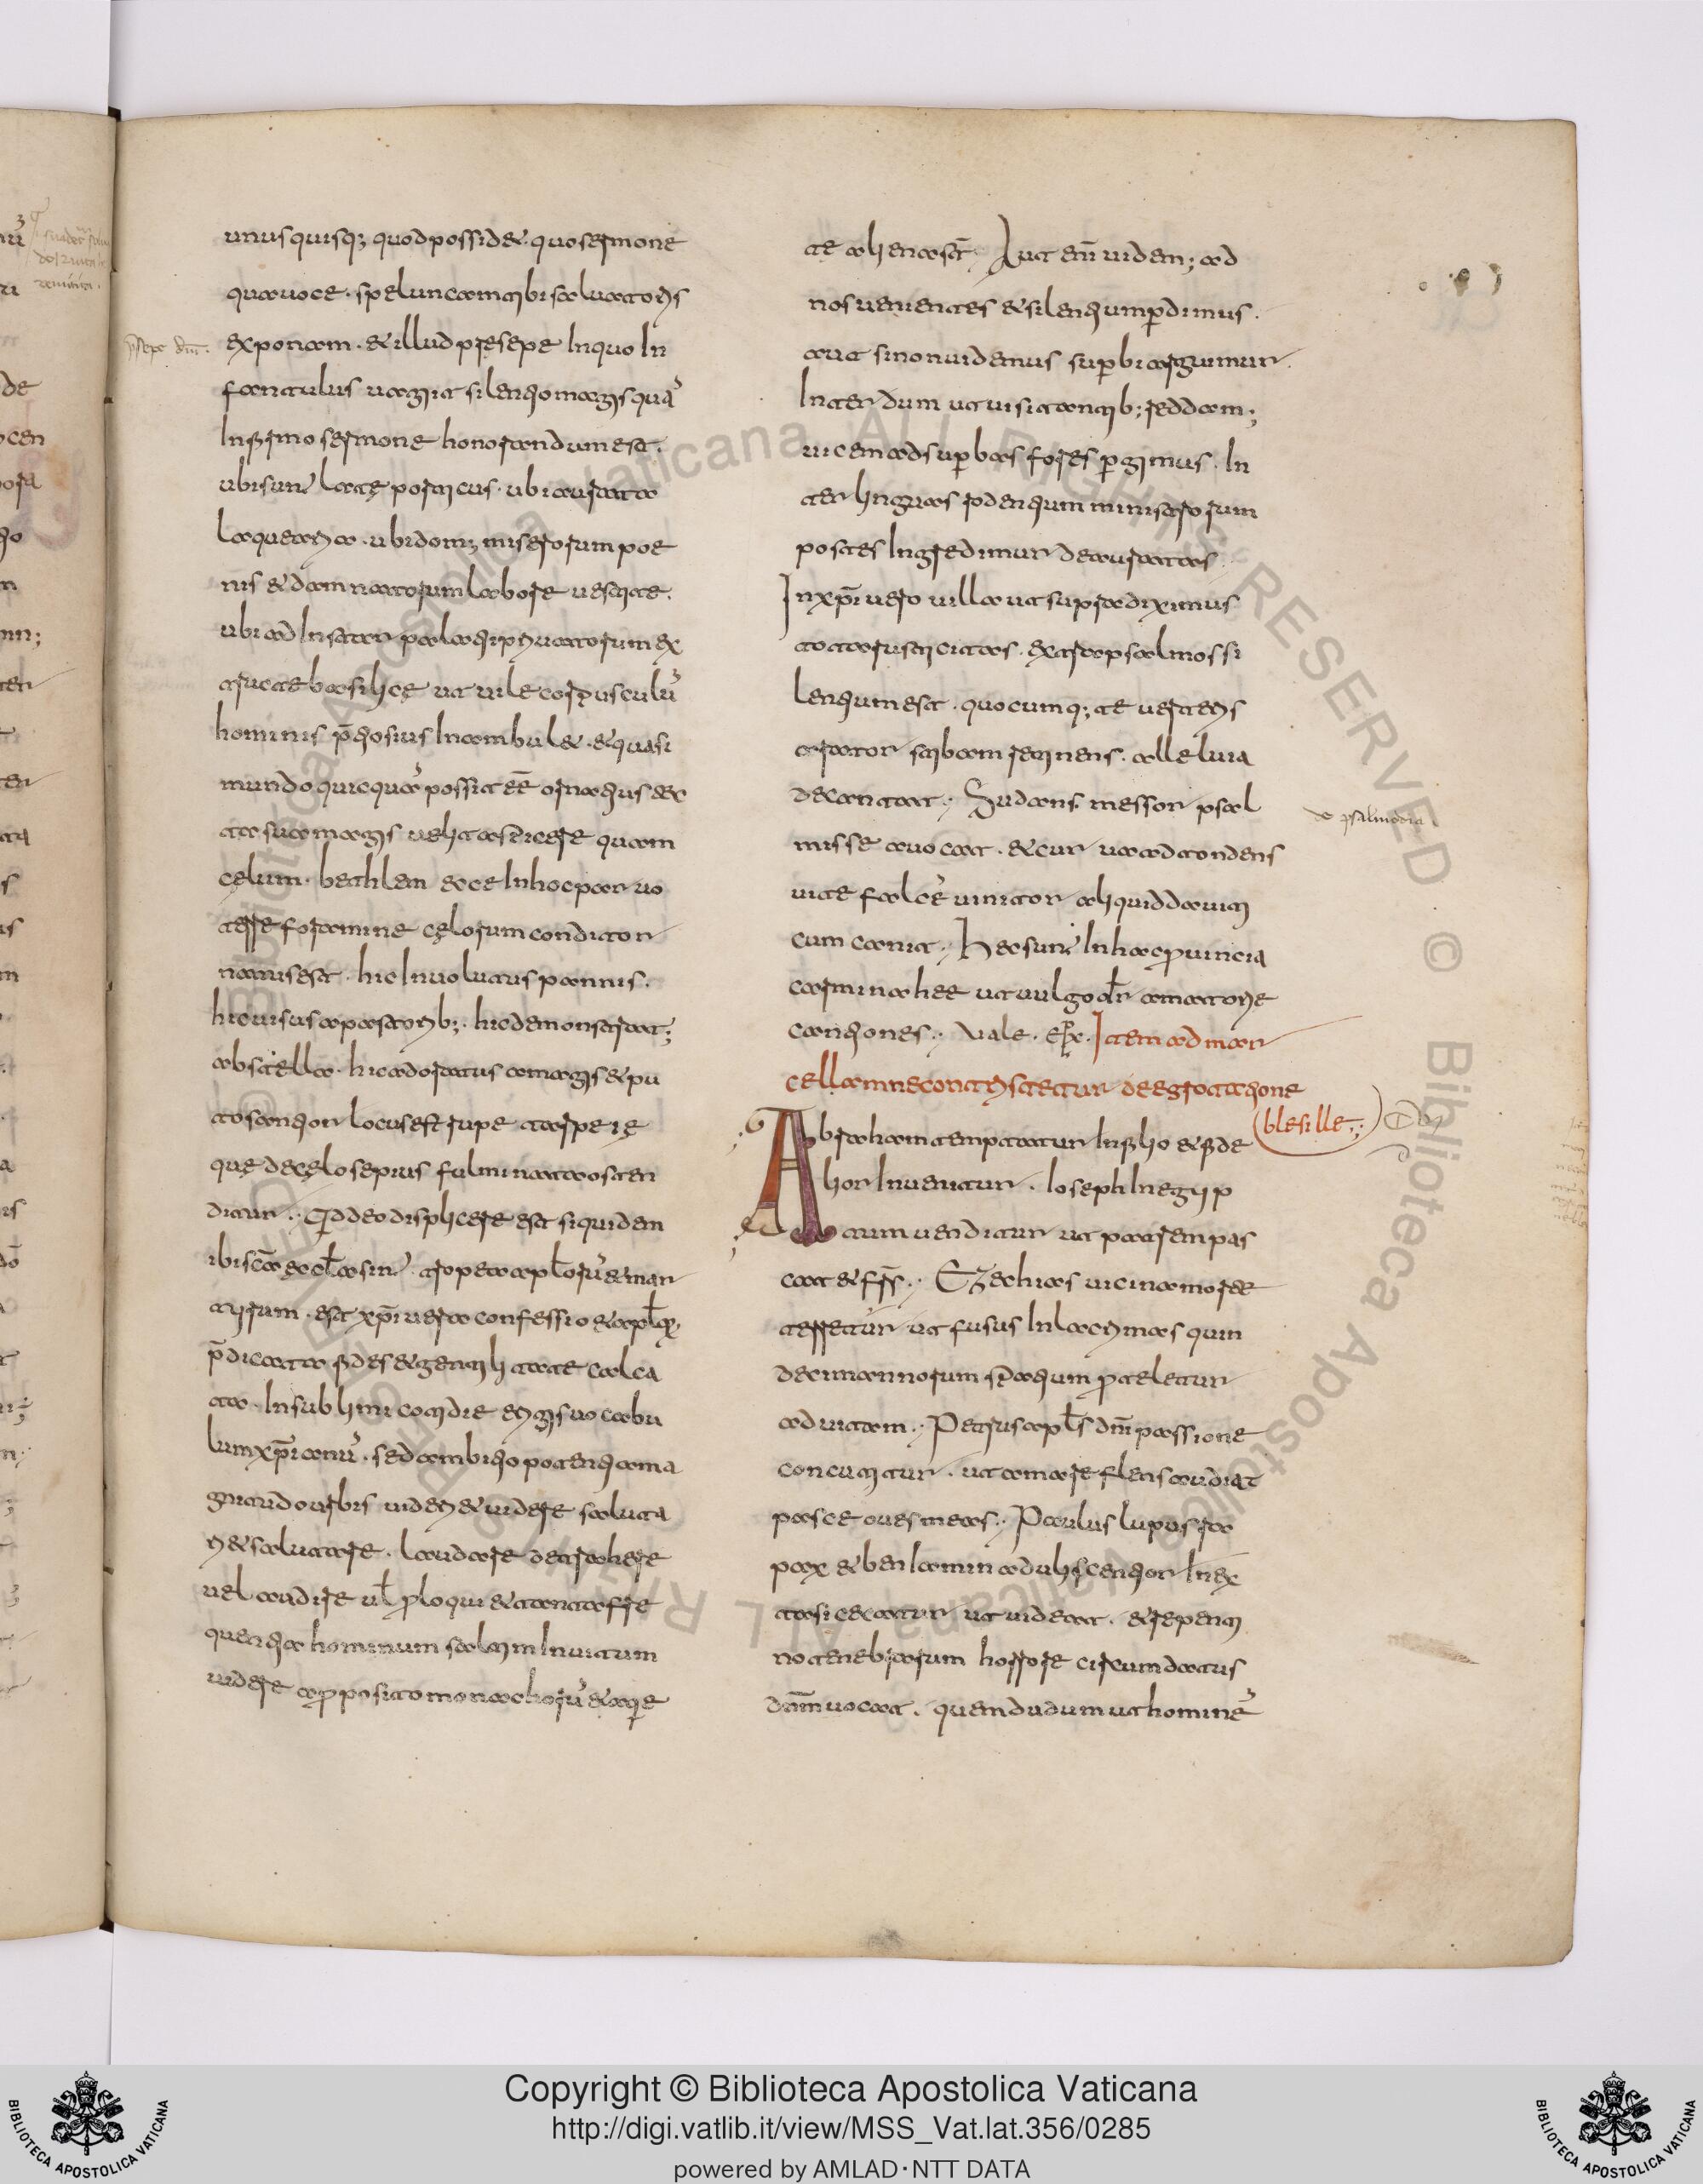 unusquisq; quod possid&. quo sermone
qua uoce. speluncam tibi saluatoris
exponam. & illud presepe Inquo In
fantulus uagiit silentio magis quā
Infirmo sermone honorandum est.
ubi sunt latę porticus. ubi aurata
laquearia. ubi dom; miserorum poe
nis & damnatorum labore uestitae.
ubi ad Instar palatii priuatorum ex
tructae basilicę ut uile corpusculū
hominis p̄tiosius Inambul&. & quasi
mundo quicquā possit eē ornatius tec
ta sua magis uelit aspicere quam
cęlum. bethlem ecce Inhoc paruo
terrę foramine cęlorum conditor
natus est. hic Inuolutus pannis.
hic uisus a pastorib;. hic demonstrat;
ab stella. hic adoratus a magis & pu
to sanctior locus est rupe tarpeię
quę de cęlo sepius fulminata osten
ditur. Qd deo displicere est siquidem
ibi scā ecclasia. tropea aplorū & mar
tirum. est xp̄i uera confessio & ab aplo
p̄dicata fides & gentilitate calca
ta. Insublimi cotidie erigens uocabu
lum xp̄ianū. sed ambitio potentia ma
gnitudo urbis uideri & uidere saluta
ri & salutare. laudare detrahere
uel audire ul̄ proloqui & tanta fre
quentia hominum saltim Inuitum
uidere a proposito monachorū & a quie
te aliena st̄. Aut enī uidem; ad
nos uenientes & silentium perdimus.
aut si non uidemus superbi arguimur.
Interdum ut uisitantib; reddam;
uicem ad superbas fores pergimus. In
ter linguas rodentium ministrorum
postes Ingredimur deauratas.
In xp̄i uero uilla ut supra diximus
tota rusticitas. extra psalmos si
lentium est. quocumq; te uerteris
arator stibam tenens. alleluia
decantat. Sudans messor psal
mis se auocat. & cur ua ad tondens
uite falcē uinitor aliquid dauiti
cum canit. Hec sunt Inhac prouincia
carmina hee ut uulgo dr̄ amatorie
cantiones. Vale. Item ad mar
cellam necontristetur de egrotatione
blesille.;
Abraham temptatur Infilio & fide
lior Inuenitur. Ioseph Inegip
tum uenditur ut patrem pas
cat & frs̄. Ezechias uicina morte
terretur ut fusus Inlacrimas quin
decim annorum spatium proteletur
ad uitam. Petrus apl̄s dn̄i passione
concutitur. ut amare flens audiat
pasce oues meas. Paulus lupus ra
pax & beniamin adulescentior Inex
tasi cecatur ut uideat. & repenti
no tenebrarum horrore circumdatus
dn̄m uocat. quem dudum ut hominē
de psalmodia